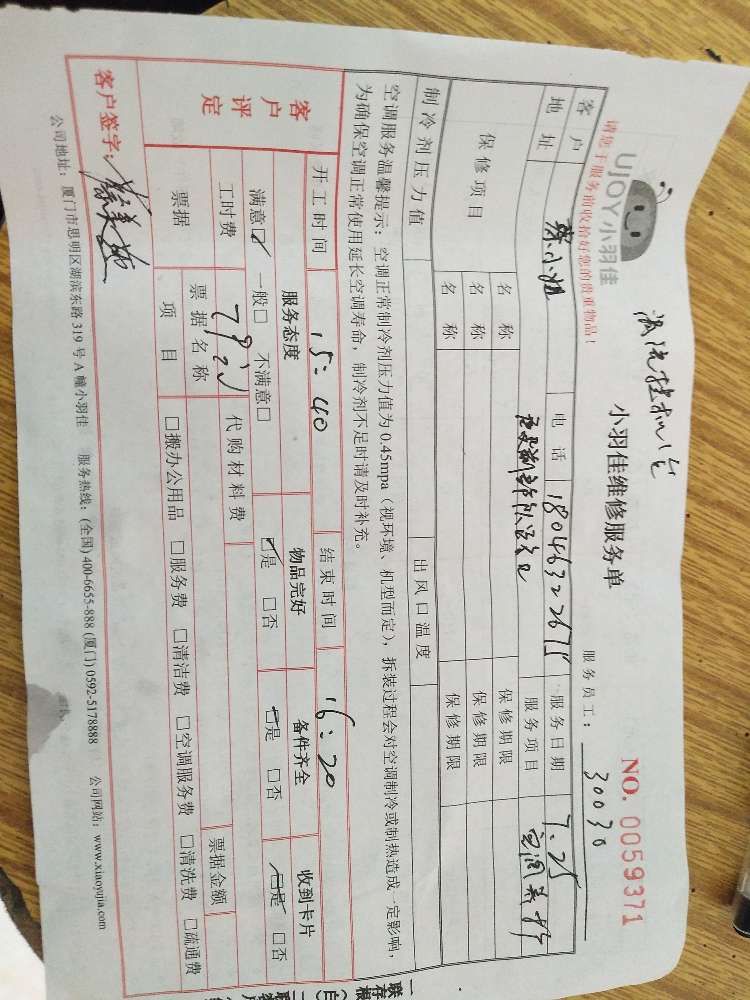 清洗挂机1台
UJOY小羽佳
小羽佳维修服务单
NO. 0059371
请您于服务前收拾好您的贵重物品！
服务员工：30030
客户 蔡小姐 电话 18046322675 服务日期 7.25
地址 服务项目 空调养护
保修项目 名称 保修期限
名称 保修期限
名称 保修期限
制冷剂压力值 出风口温度
空调服务温馨提示：空调正常制冷剂压力值为0.45mpa（视环境、机型而定），拆装过程会对空调制冷或制热造成一定影响，
为确保空调正常使用延长空调寿命，制冷剂不足时请及时补充。
开工时间 15:40 结束时间 16:20
客户评定 服务态度 物品完好 备件齐全 收到卡片
满意☑ 一般□ 不满意□ ☑是 □否 ☑是 □否 ☑是 □否
工时费 代购材料费 票据金额
票据 票据名称
项目 □搬办公用品 □服务费 □清洁费 □空调服务费 □清洗费 □疏通费
客户签字：
公司地址：厦门市思明区湖滨东路319号A幢小羽佳 服务热线：(全国) 400-6655-888 (厦门) 0592-5178888 公司网站：www.xiaoyujia.com